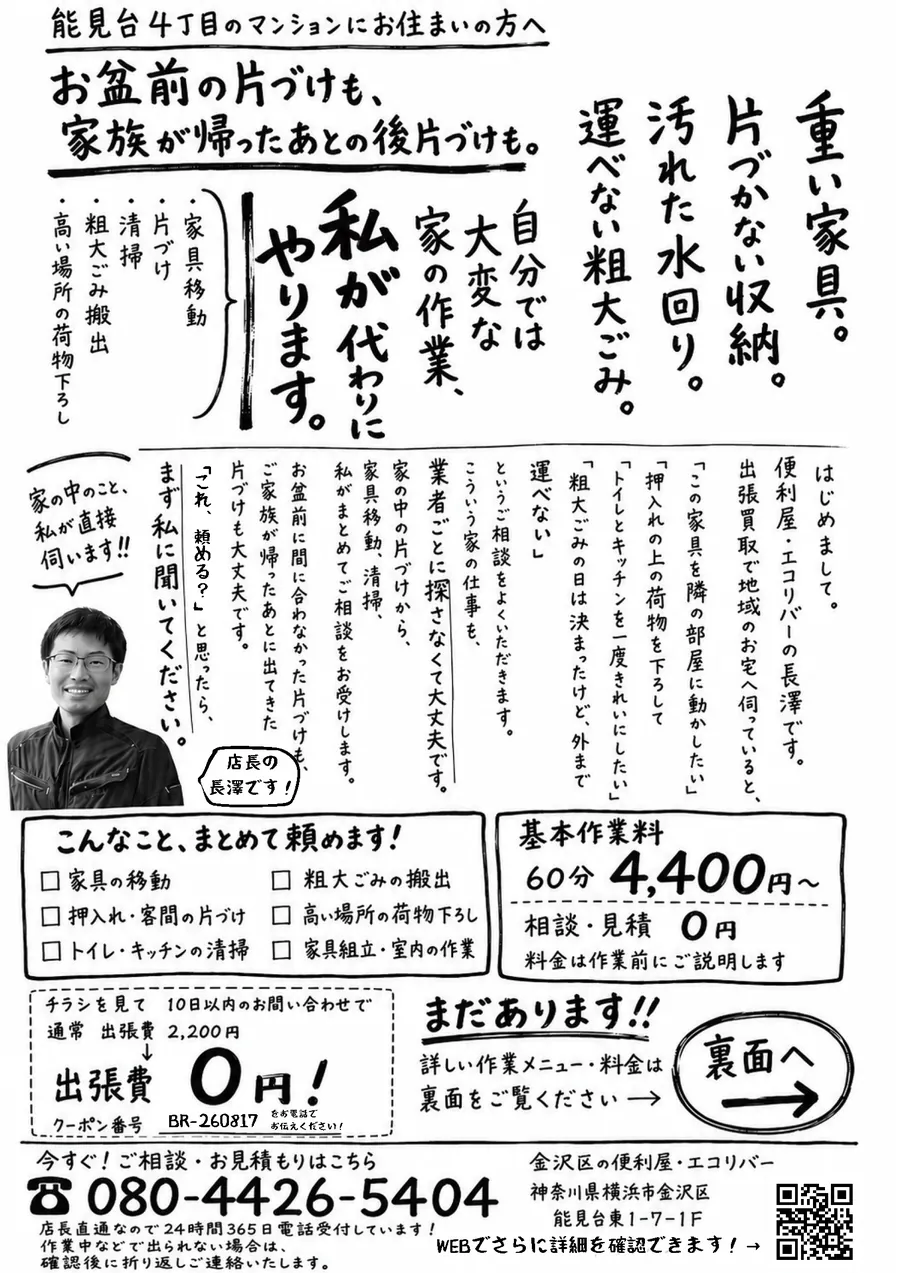 能見台4丁目のマンションにお住まいの方へ
お盆前の片づけも、
家族が帰ったあとの後片づけも。
重い家具。
片づかない収納。
汚れた水回り。
運べない粗大ごみ。
自分では
大変な
家の作業、
私が代わりに
やります。
・家具移動
・片づけ
・清掃
・粗大ごみ搬出
・高い場所の荷物下ろし
はじめまして。
便利屋・エコリバーの長澤です。
出張買取で地域のお宅へ伺っていると、
「この家具を隣の部屋に動かしたい」
「押入れの上の荷物を下ろして
「トイレとキッチンを一度きれいにしたい」
「粗大ごみの日は決まったけど、外まで
運べない」
というご相談をよくいただきます。
こういう家の仕事も、
業者ごとに探さなくて大丈夫です。
家の中の片づけから、
家具移動、清掃、
私がまとめてご相談をお受けします。
お盆前に間に合わなかった片づけも、
ご家族が帰ったあとに出てきた
片づけも大丈夫です。
「これ、頼める？」と思ったら、
まず私に聞いてください。
家の中のこと、
私が直接
伺います!!
店長の
長澤です！
こんなこと、まとめて頼めます！
□ 家具の移動
□ 粗大ごみの搬出
□ 押入れ・客間の片づけ
□ 高い場所の荷物下ろし
□ トイレ・キッチンの清掃
□ 家具組立・室内の作業
基本作業料
60分 4,400円～
相談・見積 0円
料金は作業前にご説明します
チラシを見て 10日以内のお問い合わせで
通常 出張費 2,200円
↓
出張費 0円！
クーポン番号 BR-260817 をお電話で
お伝えください！
まだあります!!
詳しい作業メニュー・料金は
裏面をご覧ください →
裏面へ
→
今すぐ！ご相談・お見積もりはこちら
☎ 080-4426-5404
店長直通なので24時間365日電話受付しています！
作業中などで出られない場合は、
確認後に折り返しご連絡いたします。
金沢区の便利屋・エコリバー
神奈川県横浜市金沢区
能見台東1-7-1F
WEBでさらに詳細を確認できます！→